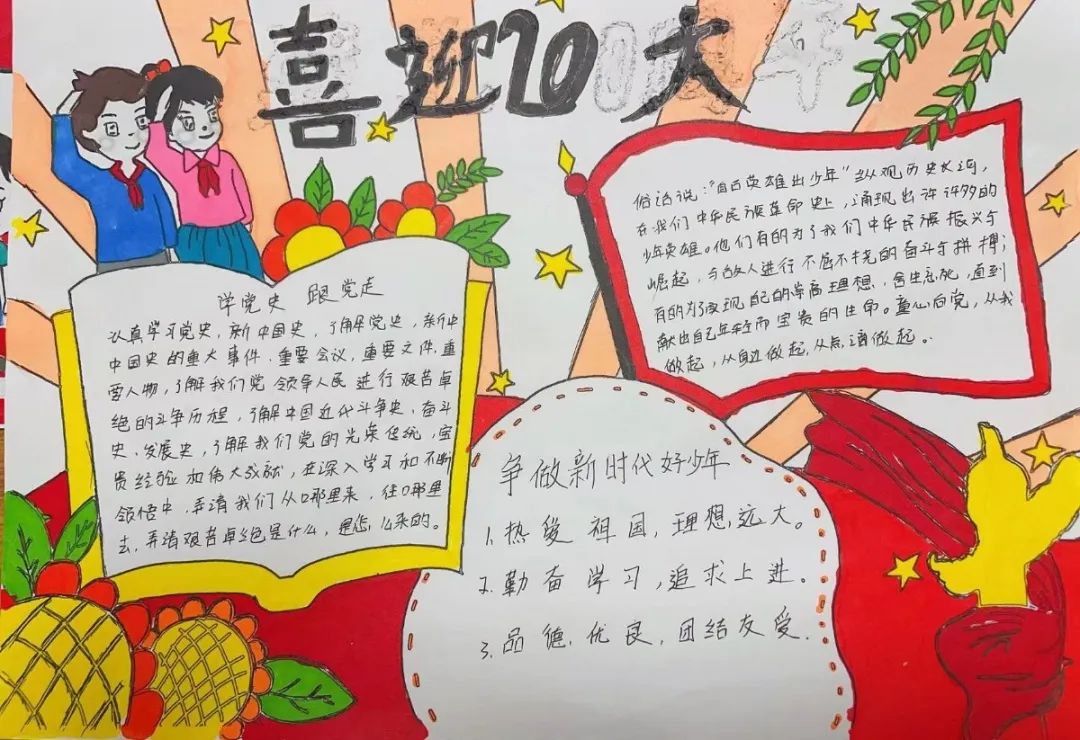 喜迎20大
学党史 跟党走
认真学习党史,新中国史,了解党史,新中
中国史的重大事件.重要会议,重要文件,重
要人物,了解我们党领导人民进行艰苦卓
绝的斗争历程,了解中国近代斗争史、奋斗
史、发展史,了解我们党的光荣传统,宝
贵经验和伟大成就,在深入学习和不断
领悟中,弄清我们从哪里来,往哪里
去,弄清艰苦卓绝是什么,是怎么来的。
俗话说:“自古英雄出少年”纵观历史长河,
在我们中华民族革命史上,涌现出许许多的
少年英雄。他们有的为了我们中华民族振兴与
崛起,与敌人进行不屈不挠的奋斗与拼搏;
有的为了实现自己的崇高理想,舍生忘死,直到
献出自己年轻而宝贵的生命。童心向党,从我
做起,从身边做起,从点滴做起。
争做新时代好少年
1.热爱祖国,理想远大。
2.勤奋学习,追求上进。
3.品德优良,团结友爱.